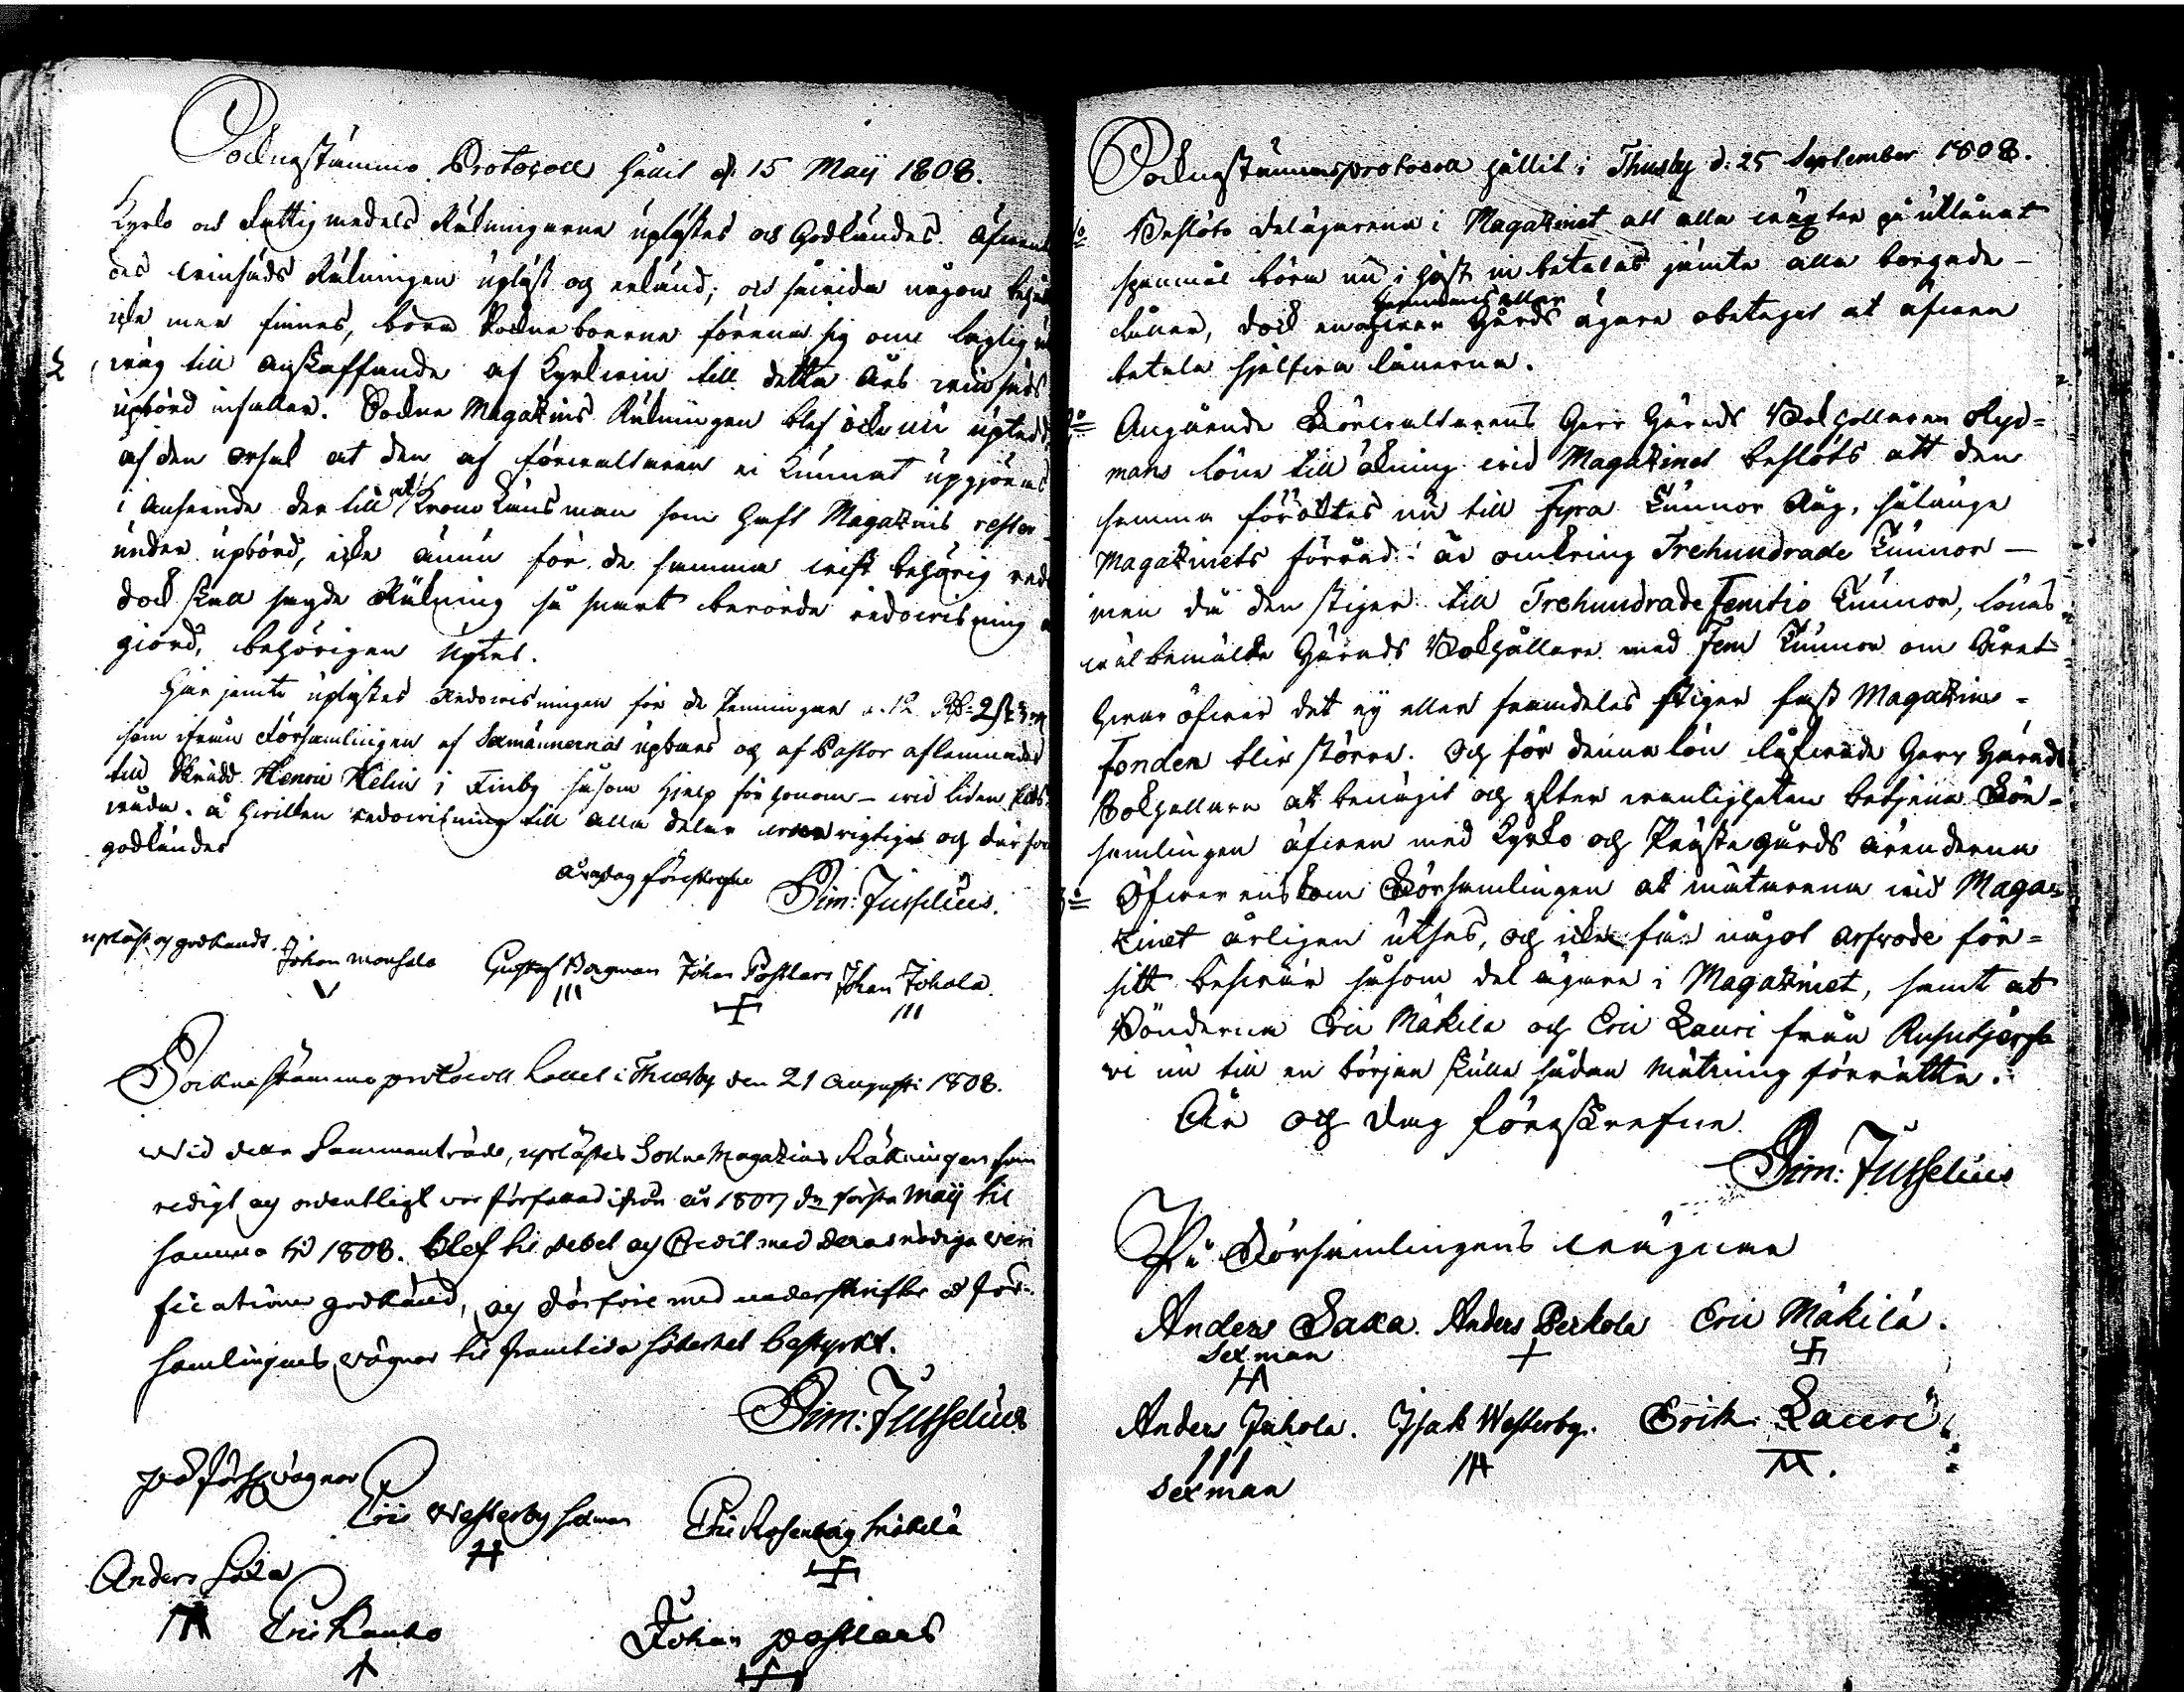 Socknestämmo Protocoll hållit d. 15 Maij 1808.
Kyrko och Fattigmedels Räkningarne uplästes och Godkändes. Äfven
des vinsäds Räkningen upläst och erkänd; och såvida någon behåll
icke mer finnes, böra Sockneboerne förena sig om laglig
väg till anskaffande af Kyrkvin till detta Års vinsäds
upbörd infaller. Sockne Magazins Räkningen blef icke nu uptedd
af den orsak at den af förvaltaren ei kunnat upgjöras
i anseende der till at Krono Länsman som haft Magazins rester
under upbörd, icke ännu för de samma vist behörig redo
dock skall sagde Räkning så snart berörde redovisning
giord, behörigen uptes.
Här jemte uplästes Redovisningen för de Penningar
som ifrån Församlingen af Sexmännerna upburs och af Pastor aflemnades
till Henric Helin i Finby såsom hjelp för honom - vid liden
våda. å hvilken redovisning till alla delar rigtiges och derföre
godkändes
År och dag föreskrefne
Sim: Jusselius.
upläst och godkändt. Johan Monsala Gustaf Bergman Johan Postlars Johan Johola.
Socknestämmo protocoll hållet i Thusby den 21 Augusti 1808.
Wid detta Sammanträde, uplästes Sokne Magazins Räkningen som
redigt och ordentligt var författad ifrån år 1807 den första Maij til
samma tid 1808. Blef til debet och Credit med deras nödiga veri
ficationer godkänd, och därföre med underskrifter å För-
samlingens vägnar til framtida säkerhet bestyrkt.
Sim: Jusselius
på förs. vägnar
Eric Westerby sexman Eric Mäkilä
Anders Saxa
Eric Johan Postlars
Socknestämmoprotocoll hållit i Thusby d. 25 September 1808.
1o Beslöto delägarena i Magazinet att alla växter på utlånat
spanmål böra nu i höst inbetalas jämte alla borgade -
lånen, dock en hvar Hemmans eller Gårds ägare obetagit at äfven
betala sjelfva lånerna.
2o Angående Förvaltarens Herr Härads Bokhållaren Ryd=
mans löne tillökning vid Magazinet beslöts att den
samma föröktes nu till Fyra Tunnor Råg, sålänge
Magazinets förråd är omkring Trehundrade Tunnor -
men då den stiger till Trehundrade Femtio Tunnor, lönes
välbemälte Härads Bokhållare med Fem Tunnor om Året
hvar öfver det ej eller framdeles stiger fast Magazins-
Fonden blir större. Och för denna lön låfvade Herr Härads
Bokhållare at benägit och efter vanligheten betjena För-
samlingen äfven med Kyrko och Prästegårds ärenderna
3o Öfverenskom Församlingen at mätarena vid Maga=
zinet årligen utses, och icke får något arfvode för=
sitt besvär såsom delägare i Magazinet, samt at
Bönderna Eric Mäkilä och Eric Lauri från Rusutjärfvi
nu till en början skulle sådan mätning förrätta.
År och dag föreskrefne.
Sim: Jusselius
På Församlingens vägnar
Anders Saxa. Anders Perkola Eric Mäkilä.
Sexman
Anders Juhola. Isak Westerby. Erik Lauri
Sexman